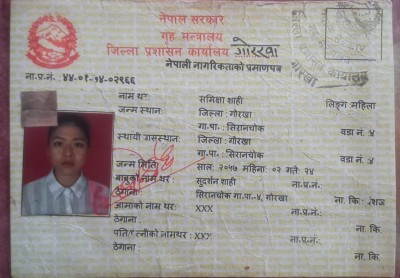 नेपाल सरकार
गृह मन्त्रालय
जिल्ला प्रशासन कार्यालय गोरखा
नेपाली नागरिकताको प्रमाणपत्र
ना.प्र.नं. ४४-०१-७४-०२९६६
नाम थर : समिक्षा शाही लिङ्ग महिला
जन्म स्थान : जिल्ला : गोरखा
गा.पा. : सिरानचोक वडा नं :४
स्थायी बासस्थान : जिल्ला : गोरखा
गा.पा. : सिरानचोक वडा नं :४
जन्म मिति : साल: २०५७ महिना: ०२ गते: २४
बाबुको नाम थर : सुदर्शन शाही ना.प्र.नं.
ठेगाना : सिरानचोक गा.पा.-४, गोरखा ना. कि. : वंशज
आमाको नाम थर : XXX ना.प्र.नं.
ठेगाना : ना. कि.
पति/पत्नीको नामथर : XXX ना.प्र.नं.
ठेगाना : ना. कि.